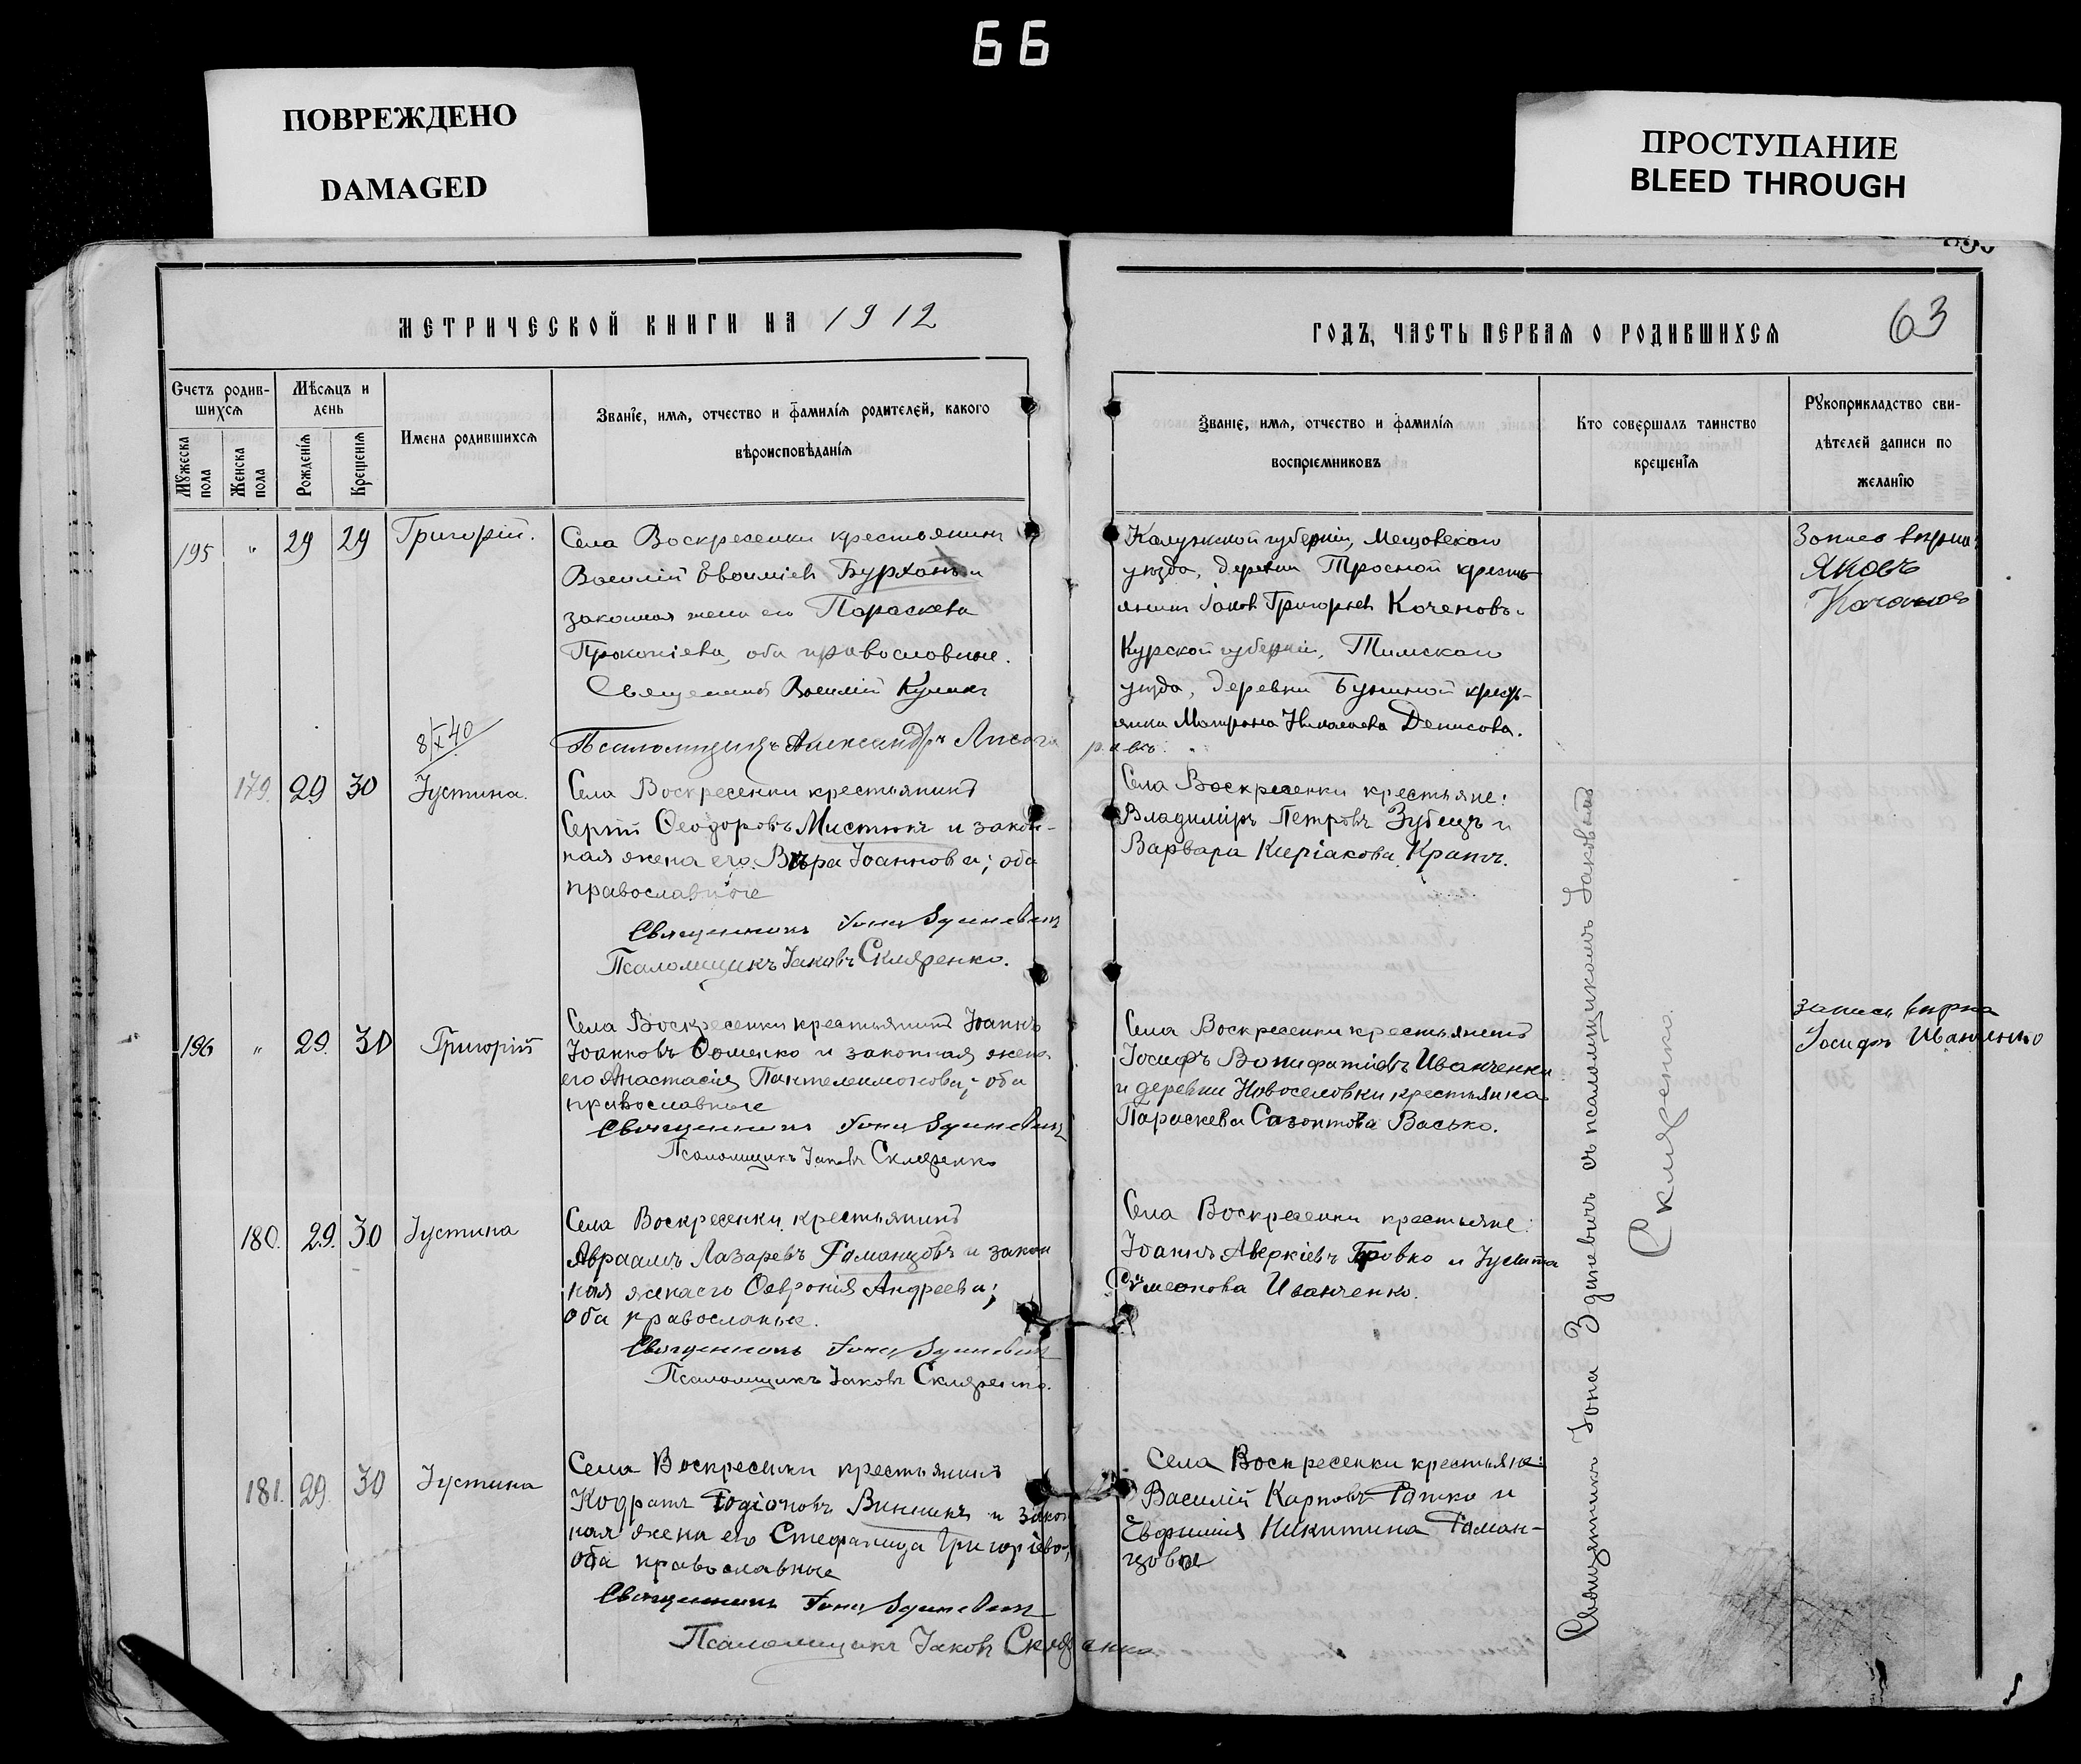 66
ПОВРЕЖДЕНО
DAMAGED
ПРОСТУПАНИЕ
BLEED THROUGH
МЕТРИЧЕСКОЙ КНИГИ НА 1912
Счетъ родив-
шихсѧ
Мѣсѧцъ и
день
Мꙋжеска
пола
Женска
пола
Рожденїѧ
Крещенїѧ
Имена родившихсѧ
Званїе, имѧ, отчество и фамилїѧ родителей, какого
вѣроисповѣданїѧ
195 " 29 29 Григорій.
Села Воскресенки крестьянинъ
Василій Евѳиміевъ Бурханъ и
законная жена его Параскева
Прокопіева, оба православные.
Священникъ Василій
Псаломщикъ Александръ
8/X 40
179. 29 30 Іустина.
Села Воскресенки крестьянинъ
Сергій Ѳеодоровъ Мистюкъ и закон-
ная жена его Вѣра Іоаннова; оба
православные
Священникъ Іона Здиневичъ
Псаломщикъ Іаковъ Скляренко.
196 " 29. 30 Григорій
Села Воскресенки крестьянинъ Іоаннъ
Іоанновъ Ѳоменко и законная жена
его Анастасія Пантелеимонова; оба
православные
Священникъ Іона Здиневичъ
Псаломщикъ Іаковъ Скляренко
180. 29. 30 Іустина
Села Воскресенки крестьянинъ
Авраамъ Лазаревъ Романцовъ и закон
ная жена его Ѳеvронія Андреева;
оба православные.
Священникъ Іона Здиневичъ
Псаломщикъ Іаковъ Скляренко.
181. 29. 30 Іустина
Села Воскресенки крестьянинъ
Кодратъ Родіоновъ Винникъ и закон
ная жена его Стефанида Григоріева;
оба православные
Священникъ Іона Здиневичъ
Псаломщикъ Іаковъ Скляренко
ГОДЪ, ЧАСТЬ ПЕРВАѦ О РОДИВШИХСѦ
63
Званїе, имѧ, отчество и фамилїѧ
воспрїемниковъ
Кто совершалъ таинство
крещенїѧ
Рꙋкоприкладство сви-
дѣтелей записи по
желанїю
Калужской губерніи, Мещовскаго
уѣзда, деревни Тросной кресть-
янинъ Іаковъ Григорьевъ Коченовъ.
Курской губерніи, Тимскаго
уѣзда, деревни Буниной кресть-
янка Матрона Николаева Денисова.
Села Воскресенки крестьяне:
Владиміръ Петровъ Зубецъ и
Варвара Киріакова Крапъ.
Села Воскресенки крестьянинъ
Іосифъ Вонифатіевъ Иванченко
и деревни Новоселовки крестьянка
Параскева Сазонтова Васько.
Села Воскресенки крестьяне:
Іоаннъ Аверкіевъ Бровко и Іулитта
Сѵмеонова Иванченко.
Села Воскресенки крестьяне:
Василій Карповъ Ратко и
Евфимія Никитина Роман-
цовы
Священникъ Іона Здиневичъ съ псаломщикомъ Іаковомъ
Скляренко.
Запись вѣрна
Яковъ
Качановъ
запись вѣрна
Іосифъ Иванченко